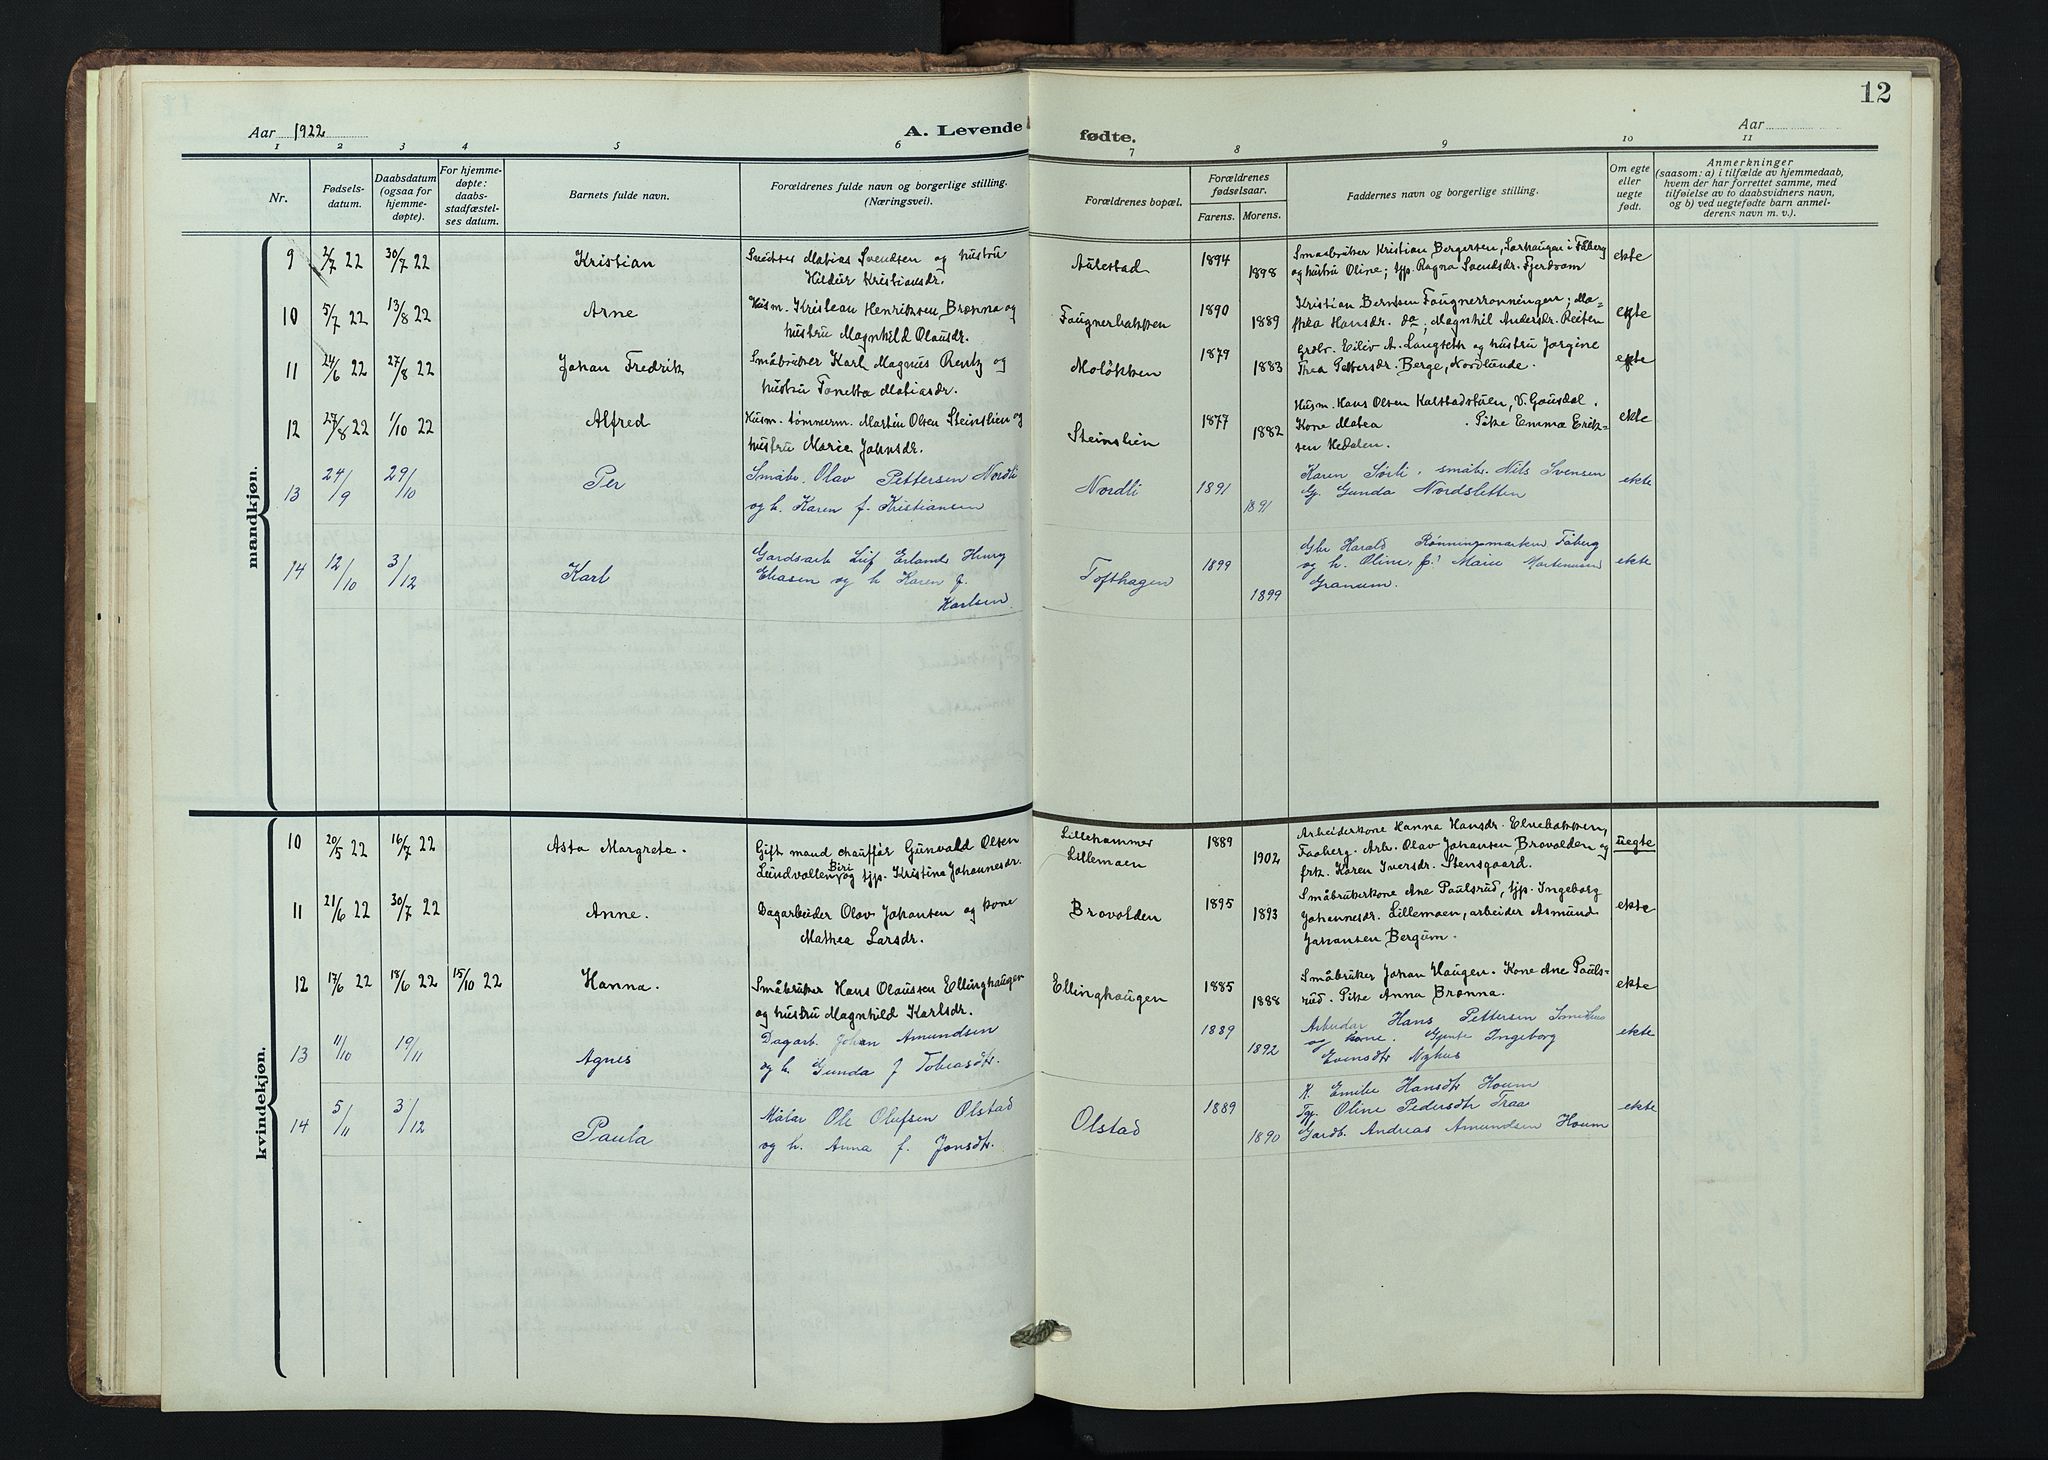 12
Aar 1922
A. Levende fødte.
Aar
1 2 3 4 5 6 7 8 9 10 11
Nr.
Fødsels-
datum.
Daabsdatum
(ogsaa for
hjemme-
døpte).
For hjemme-
døpte:
daabs-
stadfæstel-
ses datum.
Barnets fulde navn.
Forældrenes fulde navn og borgerlige stilling.
(Næringsvei).
Forældrenes bopæl.
Forældrenes
fødselsaar.
Farens. Morens.
Faddernes navn og borgerlige stilling.
Om egte
eller
uegte
født.
Anmerkninger
(saasom: a) i tilfælde av hjemmedaab,
hvem der har forrettet samme, med
tilføielse av to daabsvidners navn,
og b) ved uegtefødte barn anmel-
derens navn m. v.).
mandkjøn.
9 2/7 22 30/7 22 Kristian Matias Svendsen og hustru
Kristiansdr.
Aulestad 1894 1898
Småbruker Kristian Bergersen, i Fåberg
og hustru Oline; tjp. Ragna Svendsdr. Fjerdsom
ekte
10 5/7 22 13/8 22 Arne
Husm. Kristian Henriksen Brønna og
hustru Magnhild Olausdr.
Faugnerbakken 1890 1889
Kristian Berntsen Faugnerrønningen; Ma-
thea Hansdr. do; Magnhil Andersdr. Reiten
ekte
11 24/6 22 27/8 22 Johan Fredrik
Småbruker Karl Magnus Rentz og
hustru Tonetta Matiasdr.
Moløkken 1879 1883
Grdbr. Eiliv A. Langseth og hustru Jørgine
Thea Pettersdr. Berge, Nordlunde.
ekte
12 27/8 22 1/10 22 Alfred
Husm. tømmerm. Martin Olsen Steinslien og
hustru Marie Johnsdr.
Steinslien 1877 1882
Husm. Hans Olsen Kalstadstuen, V. Gausdal.
Kone Matea . Pike Emma Erik-
sen Hedalen.
ekte
13 24/9 29/10 Per
Småbr. Olav Pettersen Nordli
og h. Karen f. Kristiansen
Nordli 1891 1891
Karen Sørli. småbr. Nils Svensen
Gj. Gunda Nordsletten
ekte
14 12/10 3/12 Karl
Gardsarb. Leif Erland Henry
Eliasen og h Karen f.
Karlsen
Tofthagen 1899 1899
Gbr Harald Rønningsmarken Fåberg
og h. Oline, p. Marie Martinusen
Granum.
ekte
kvindekjøn.
10 20/5 22 16/7 22 Asta Margrete.
Gift mand chauffør Gunvald Olsen
Lundvollen, Biri og tjp. Kristina Johannesdr.
Lillehammer
Lillemoen
1889 1902
Arbeiderkone Hanna Hansdr. Elvebakken,
Faaberg. Arb. Olav Johansen Brovolden og
frk. Karen Iversdr. Stensgaard.
uegte
11 21/6 22 30/7 22 Anne.
Dagarbeider Olav Johansen og kone
Mathea Larsdr.
Brovolden 1895 1893
Småbrukerkone Ane Paulsrud, tjp. Ingeborg
Johannesdr. Lillemoen, arbeider Asmund
Johansen Bergum.
ekte
12 17/6 22 18/6 22 15/10 22 Hanna.
Småbruker Hans Olaussen Ellinghaugen
og hustru Magnhild Karlsdr.
Ellinghaugen 1885 1888
Småbruker Johan Haugen. Kone Ane Pauls-
rud. Pike Anna Brønna.
ekte
13 11/10 19/11 Agnes
Dagarb. Johan Amundsen
og h. Gunda f Tobiasdtr.
1889 1892
Arbeidar Hans Pettersen
og kone. Gjente Ingeborg
Evensdtr Nyhus
ekte
14 5/11 3/12 Paula
Målar Ole Olufsen Olstad
og h. Anna f. Jonsdtr.
Olstad 1889 1890
K. Emilie Hansdtr Houm
Tj. Oline Pedersdtr Traa
Gardb. Andreas Amundsen Houm
ekte